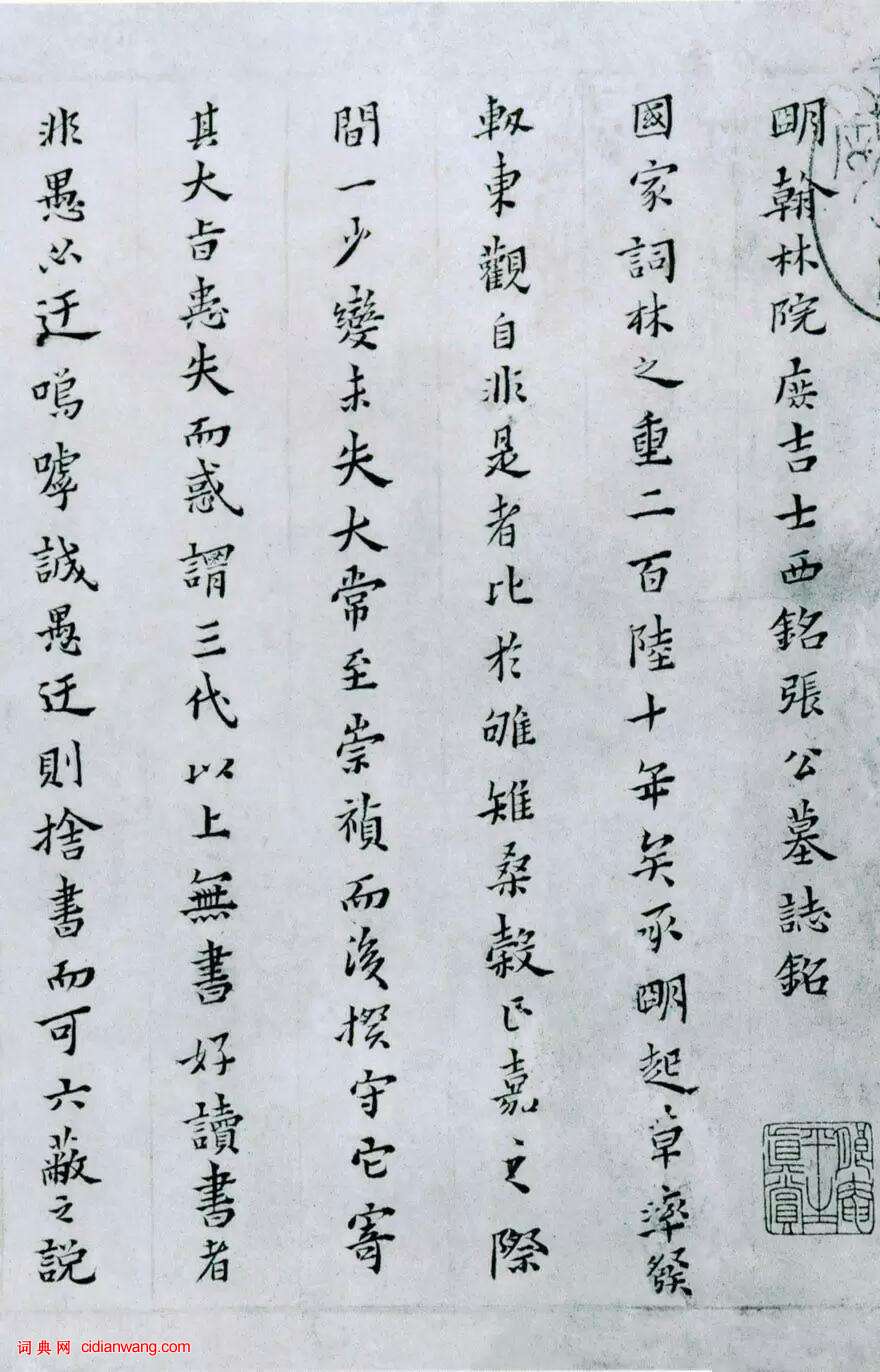 明翰林院庶吉士西銘張公墓誌銘
國家詞林之重二百陸十年矣承明起草率發
軔東觀自非是者比於雊雉桑穀正嘉之際
間一少變未失大常至崇禎而後揆守它寄
其大旨患失而惑謂三代以上無書好讀書者
非愚必迂嗚嘑誠愚迂則捨書而可六蔽之說
庵
平生
真賞
词典网 cidianwang.com